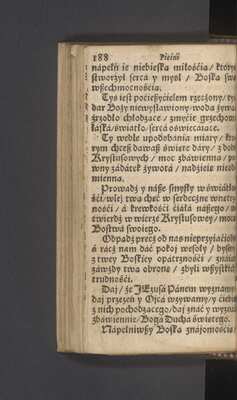 188 Pieśń
nápełń ie niebieską miłośćią / ktoryś
stworzył sercá y myśl / Boską swą
wszechmocnośćią.
Tyś iest poćieszyćielem rzeczony / ty
dar Boży niewysłáwiony / wodá żywa
źrzodło chłodzące / zmycie grzechow
łáská / światło / sercá oświecáiące.
Ty wedle vpodobánia miáry / kto-
rym chcesz dawasz święte dáry / z dobr
Krystusowych / moc zbáwienna / pe-
wny zadátek żywotá / nádzieiá nieod-
mienna.
Prowadź y násze smysły w światłо-
śći / wley twą chęć w serdeczne wnetrz-
nośći / á krewkość ciáłá nászego / v-
twierdź w wierze Krystusowey / mocą
Bostwá swoiego.
Odpądź precz od nas nieprzyiaciołá
á rácz nam dáć pokoy wesoły / byśmy
z twey Boskiey opátrznośći / ználi
záwżdy twą obronę / zbyli wszystkich
trudnośći.
Day / że JEzusá Pánem wyznawamy
day przezeń y Oycá wzywámy / y ćiebie
z nich pochodzącego / day znáć y wyznáć
zbáwiennie / Bogá Duchá świętego.
Nápełniwszy Boską znáiomośćią /